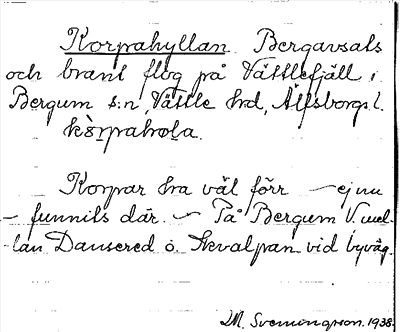 Korpahyllan. Bergavsats
och brant flög på Vättlefjäll i
Bergum s:n, Vättle hd, Älfsborgs l.
kòrpahola.
Korpar ha väl förr – ej nu
– funnits där. – På Bergum V. mel-
lan Dansered o. Skvalpan vid byväg.
M. Svenningson. 1938.